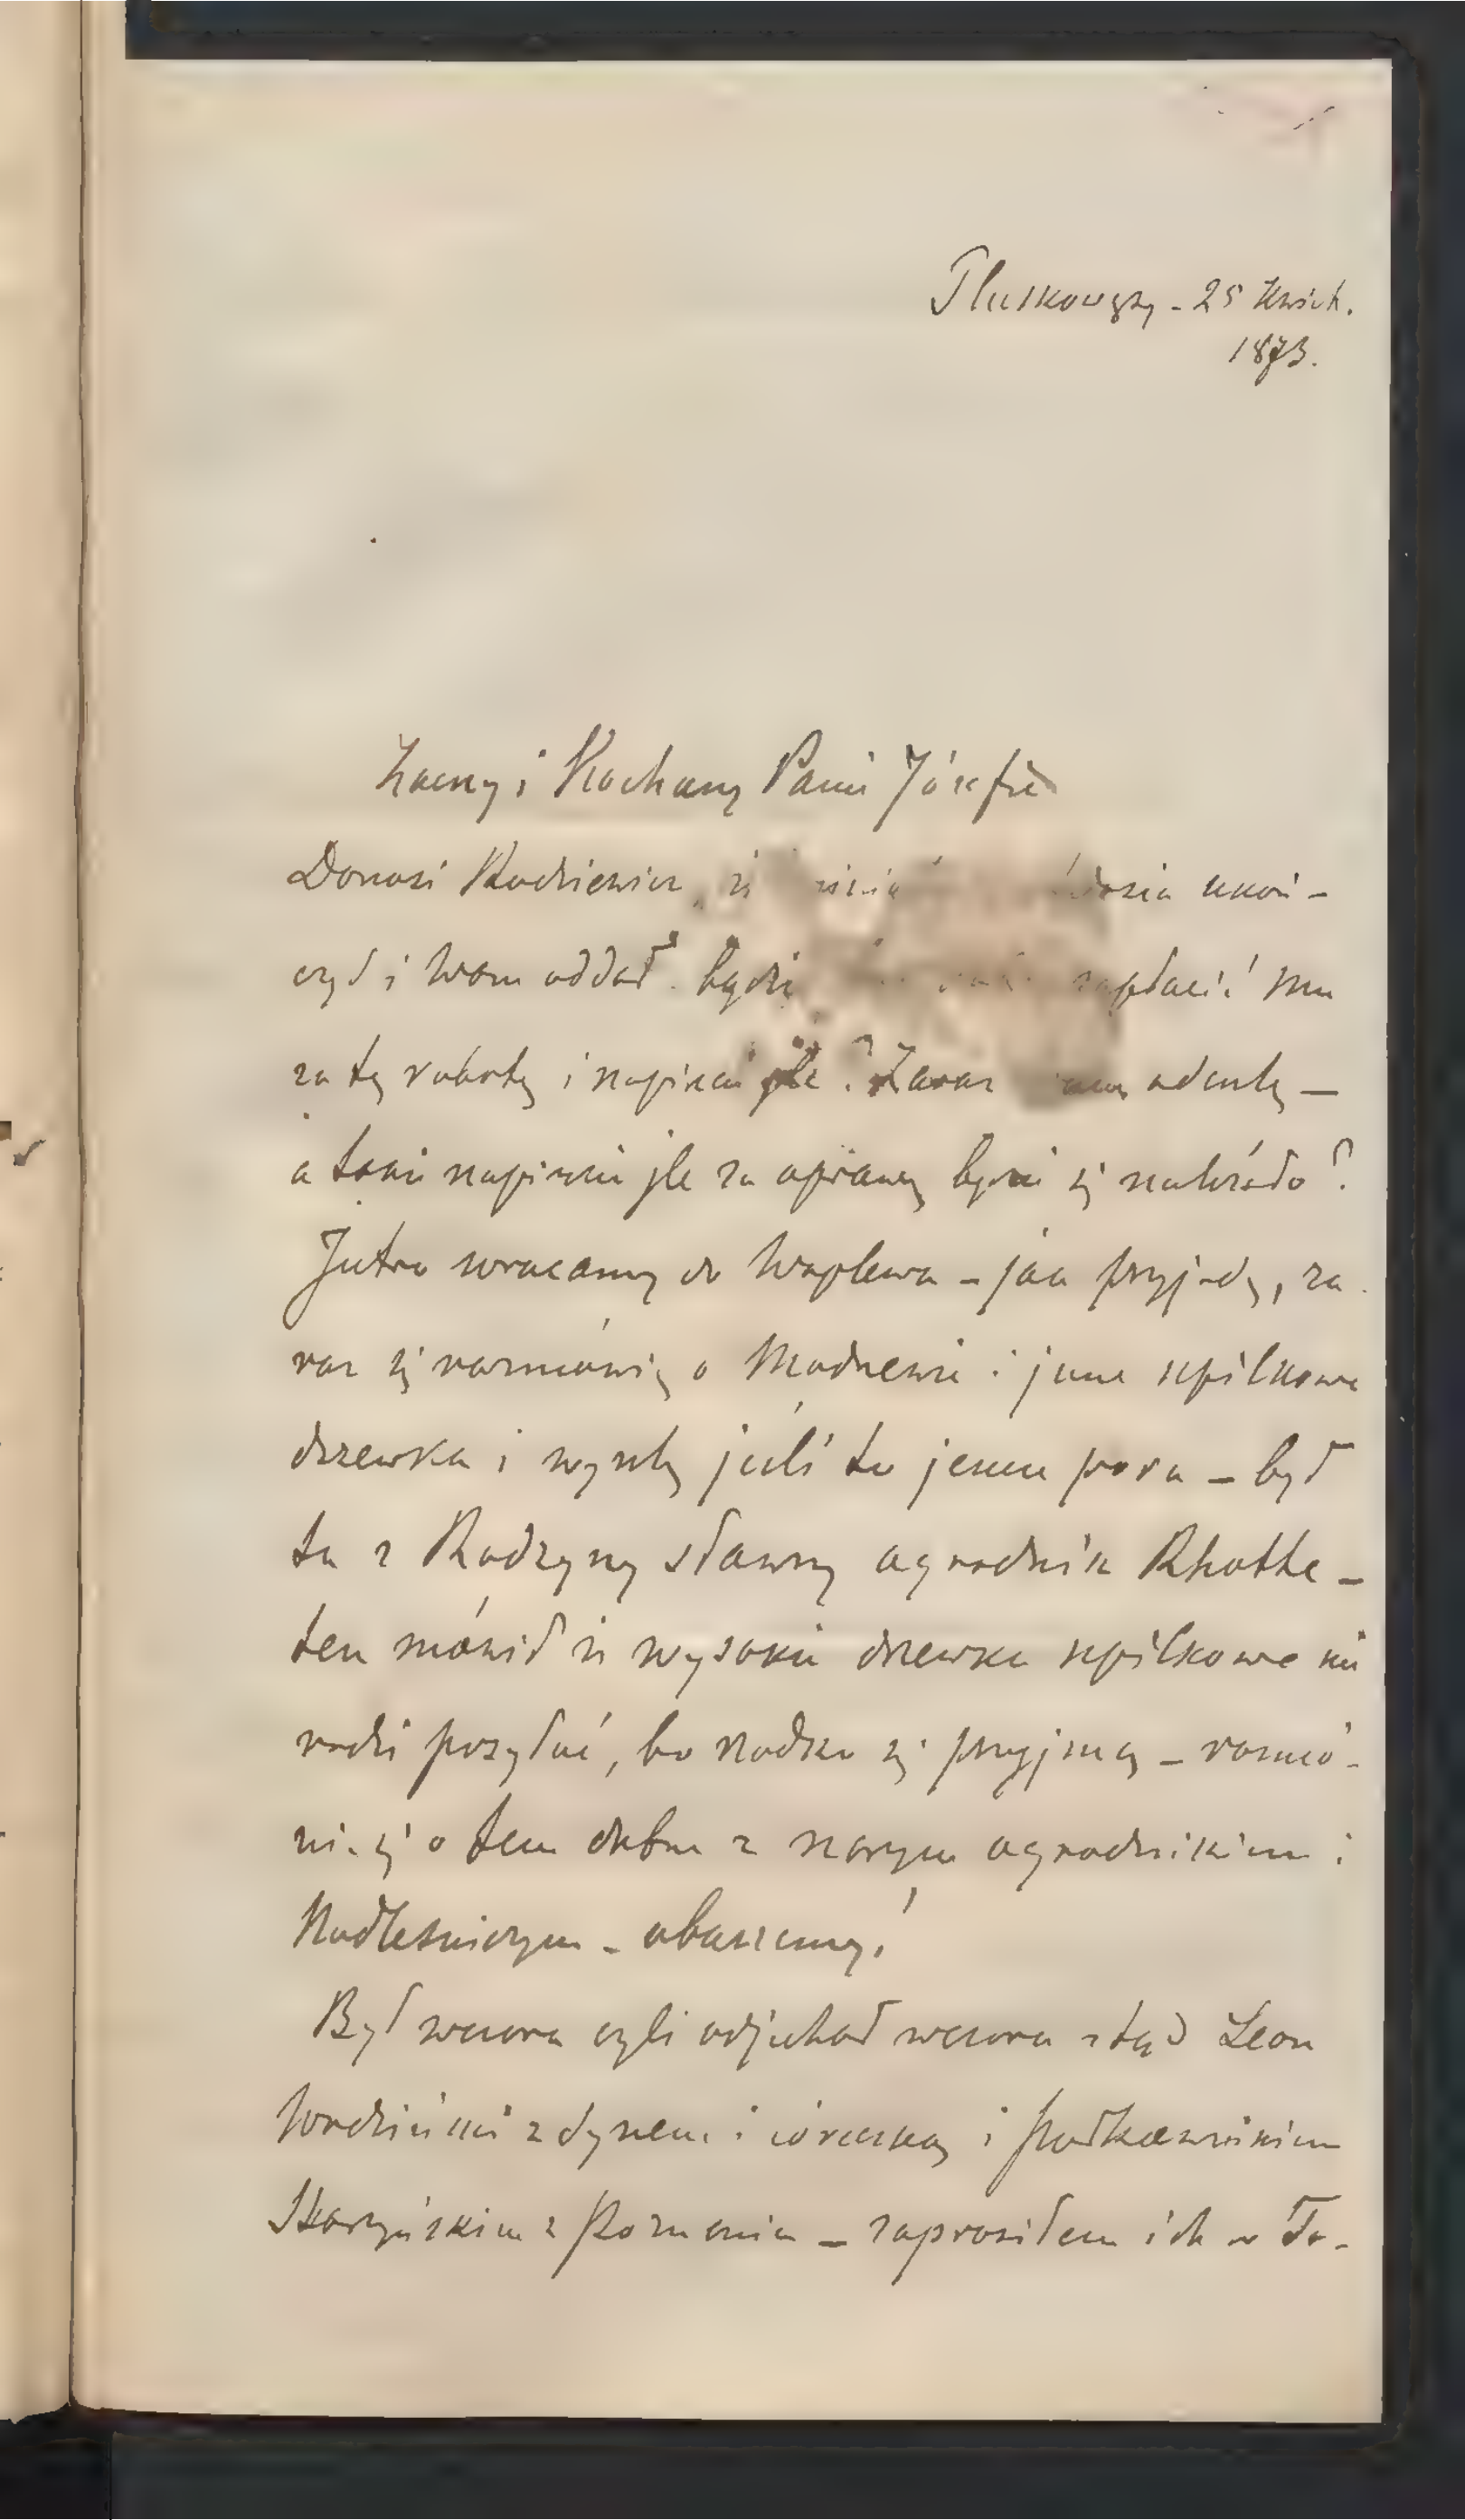 Pluskowęsy – 25 Kwiet.
1873.
Zacny i Kochany Panie Józefie
Donosi Rodziewicz, że ukoń-
czył i Wam oddał. będzie zapłacić mu
za tę robotę i napisać jle? Zaraz odeślę –
a także napiszcie jle za oprawę będzie się należało?
Jutro wracamy do Waplewa – jak przyjadę, za
raz się rozmówię o Modrzewie i jnne szpilkowe
drzewka i wyszlę jeśli to jeszcze pora – był
tu z Radzyny sławny ogrodnik Rhotke –
ten mówił że wysokie drzewka szpilkowe nie
radzi posyłać, bo rzadko się przyjmą – rozmó-
wię się o tem dobrze z starym ogrodnikiem i
Nadleśniczym – obaczemy!
Był wczora czyli odjechał wczora ztąd Leon
Wodziński z synem i córeczką i Pułkownikiem
Skarzyńskim z Poznania – zaprosiłem ich w To-